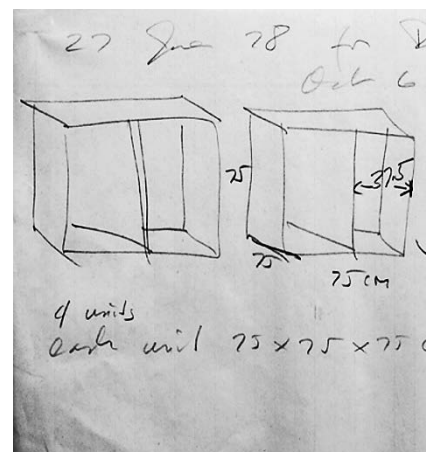 27 June 78 for
Oct 6
75
37.5
75
75 cm
4 units
each unit 75 x 75 x 75 c